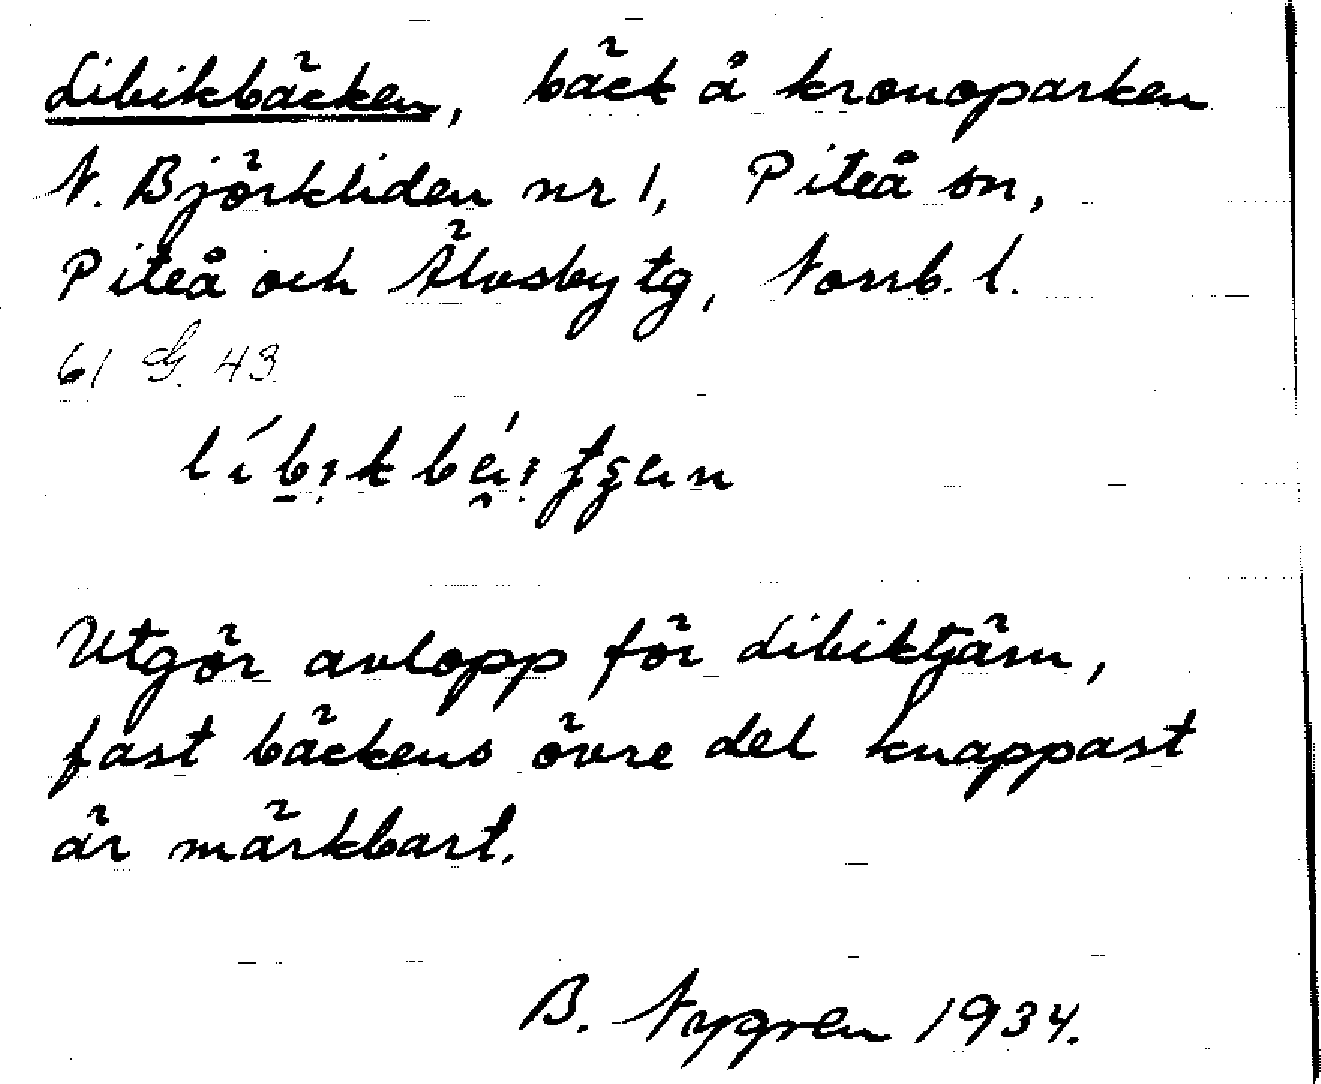 Libikbäcken, bäck å kronoparken
N. Björkliden nr 1, Piteå sn,
Piteå och Älvsby tg, Norrb. l.
61 G. 43
Utgör avlopp för Libiktjärn,
fast bäckens övre del knappast
är märkbart.
B. Nygren 1934.